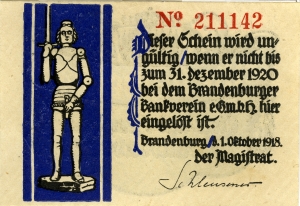 No 211142
Dieser Schein wird un-
gültig, wenn er nicht bis
zum 31. Dezember 1920
bei dem Brandenburger
Bankverein e.G.m.b.H. hier
eingelöst ist.
Brandenburg a.H. 1. Oktober 1918.
der Magistrat.